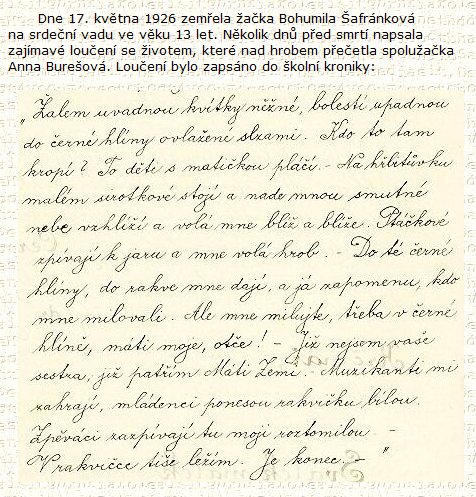 Dne 17. května 1926 zemřela žačka Bohumila Šafránková
na srdeční vadu ve věku 13 let. Několik dnů před smrtí napsala
zajímavé loučení se životem, které nad hrobem přečetla spolužačka
Anna Burešová. Loučení bylo zapsáno do školní kroniky:
„Žalem uvadnou kvítky něžné, bolestí upadnou
do černé hlíny ovlažené slzami. Kdo to tam
kropí? To děti s matičkou pláčí. - Na hřbitůvku
malém sirotkové stojí a nade mnou smutné
nebe vzhlíží a volá mne blíž a blíže. Ptáčkové
zpívají k jaru a mne volá hrob. - Do té černé
hlíny, do rakve mne dají, a já zapomenu, kdo
mne milovali. Ale mne milujte, třeba v černé
hlíně, máti moje, otče! - Již nejsem vaše
sestra, již patřím Máti Zemi. Muzikanti mi
zahrají, mládenci ponesou rakvičku bílou.
Zpěváci zazpívají tu moji roztomilou. -
V rakvičce tiše ležím. Je konec - "